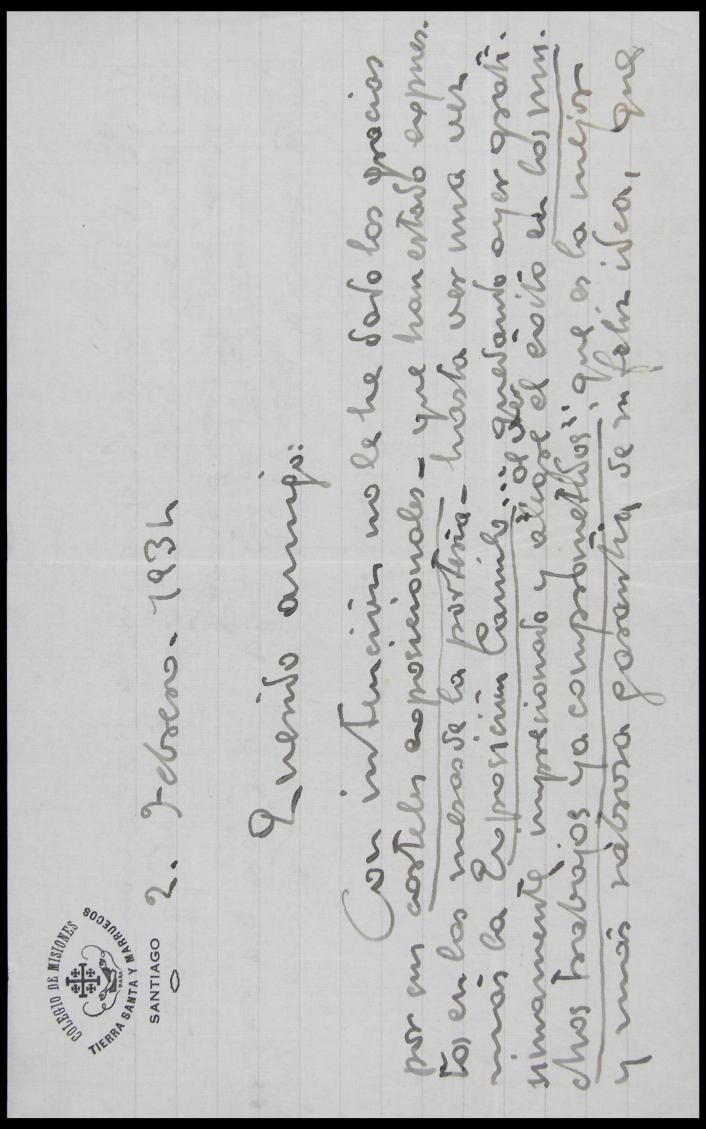 COLEGIO DE MISIONES
PARA
TIERRA SANTA Y MARRUECOS
SANTIAGO
2. Febrero- 1934
Querido amigo:
Con intención no le he dado las gracias
por sus carteles exposicionales – que han estado expues-
tos en las mesas de la portería – hasta ver una vez
más la Exposición Camilo... quedando ayer grati-
al ver
simamente impresionado y alegre el éxito en los mu-
chos trabajos ya comprometidos", que es la mejor
y más sabrosa garantía, de su feliz idea, que